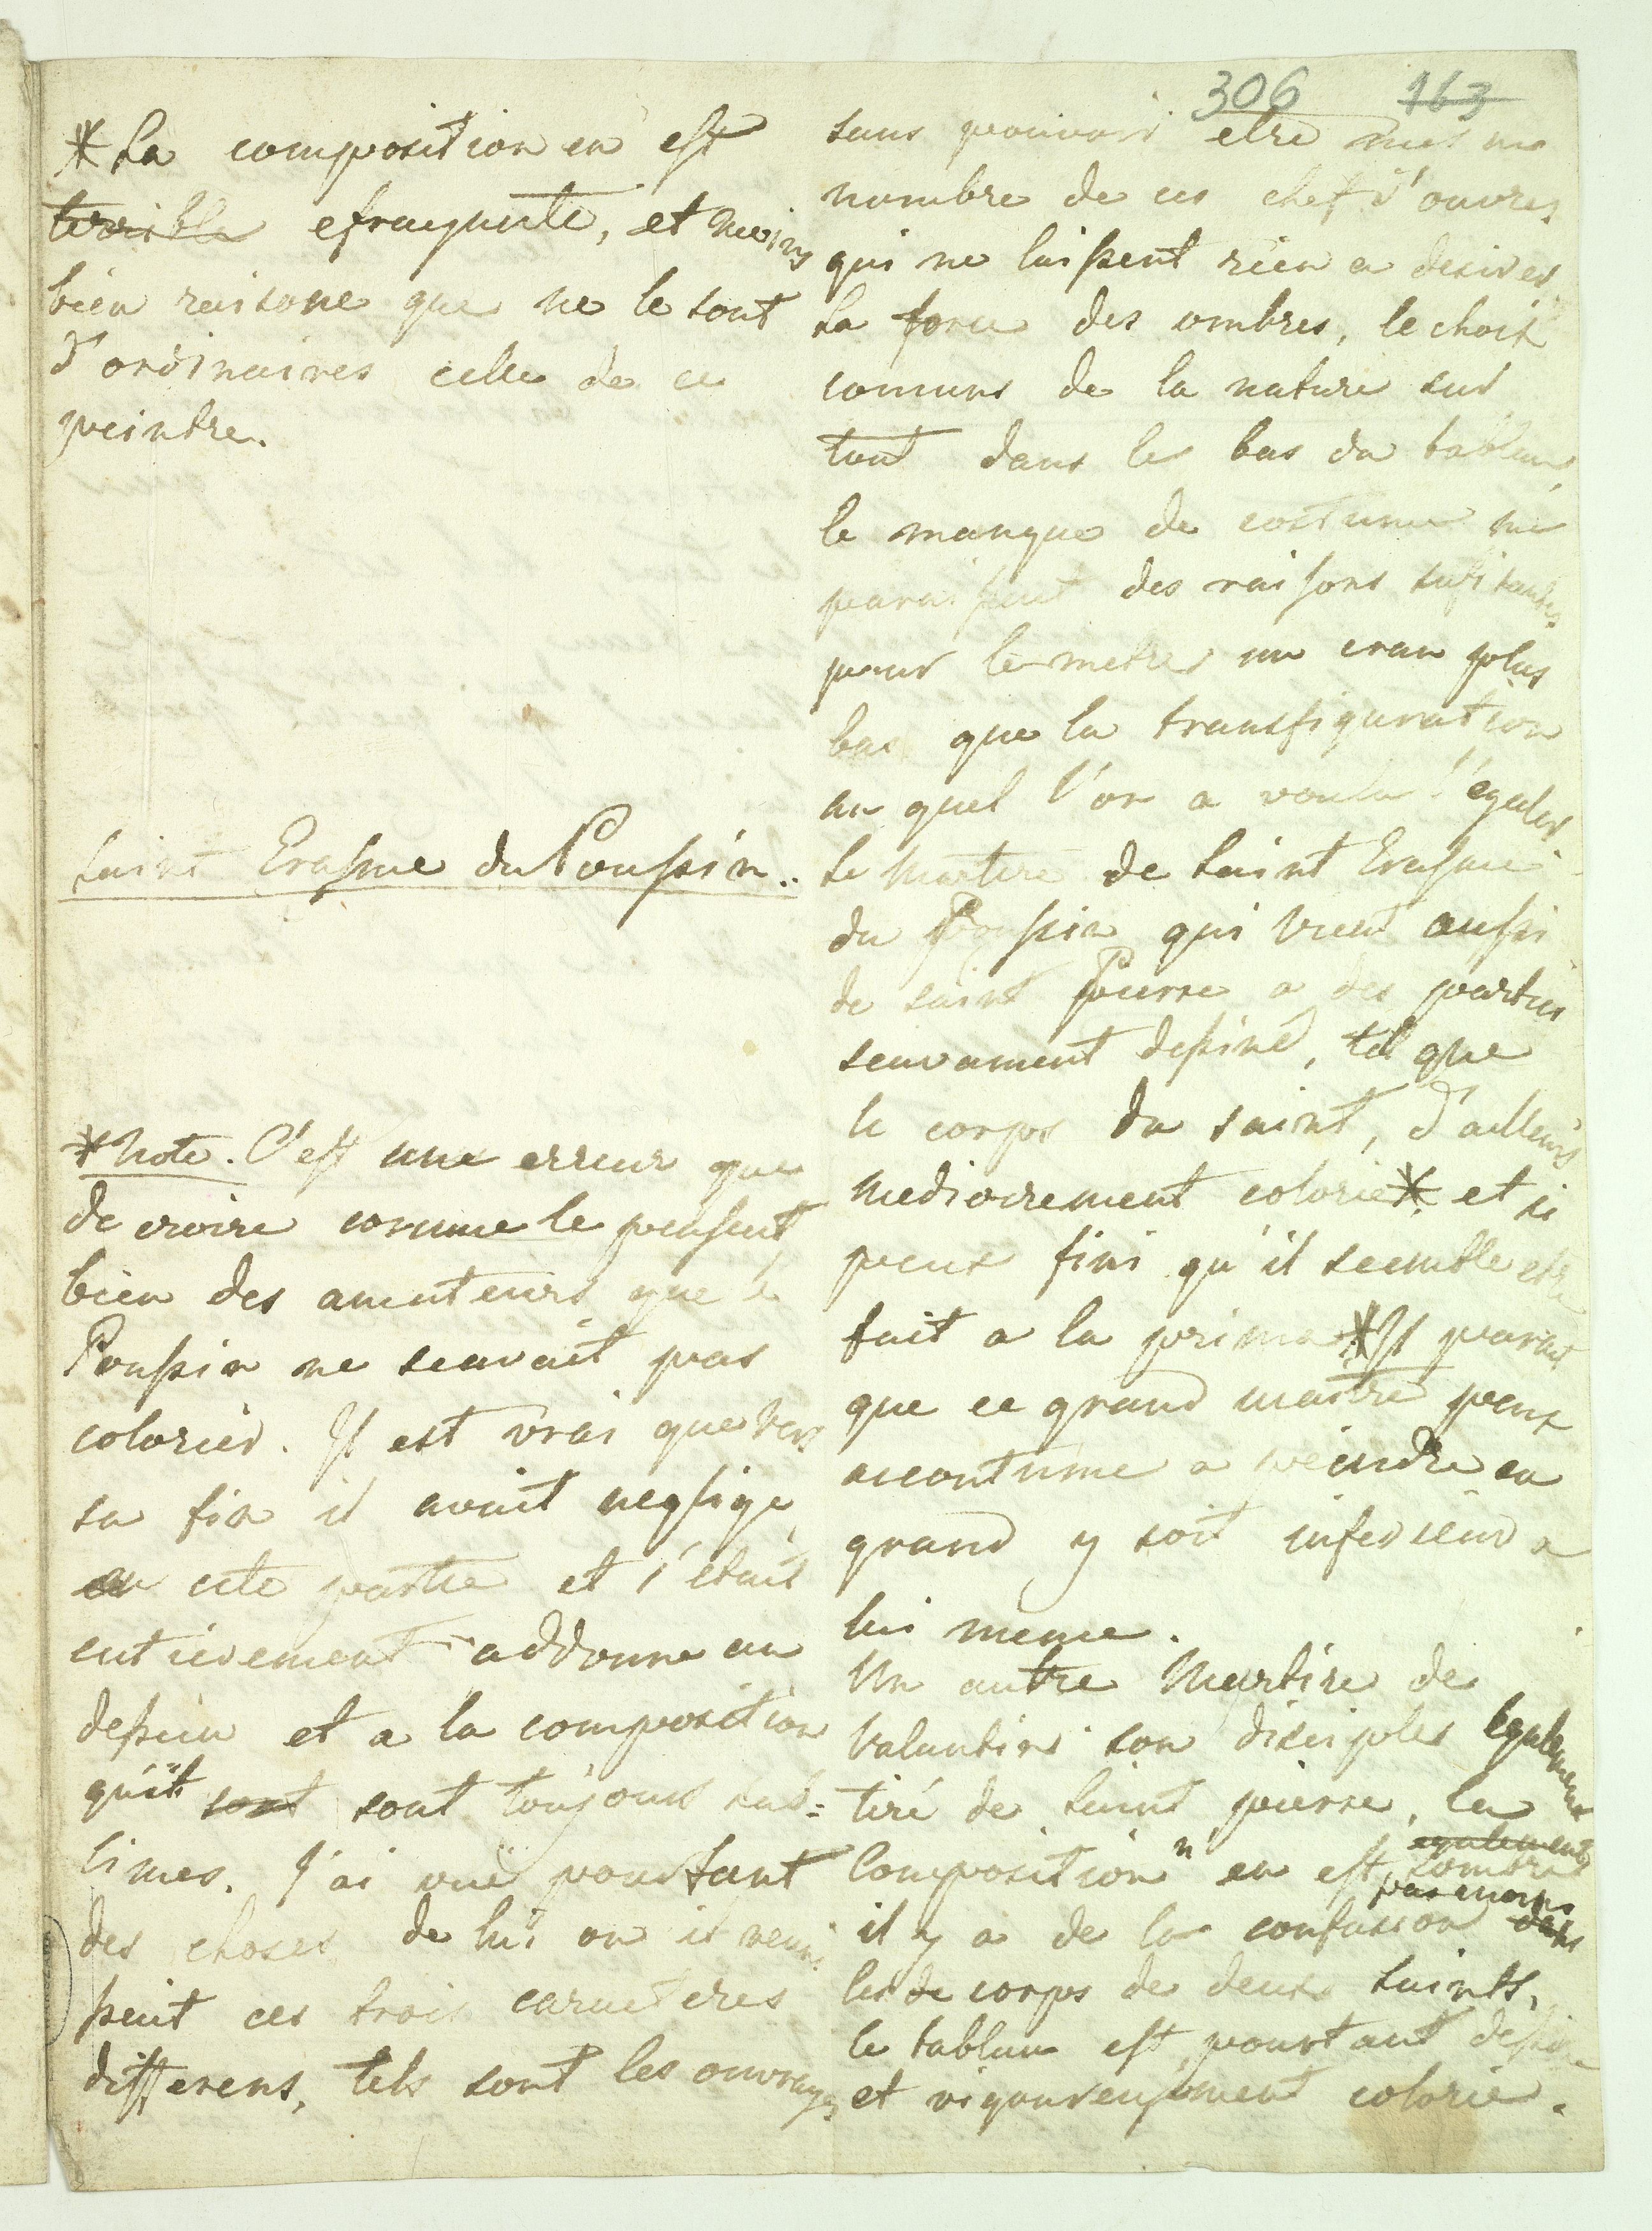 306 163
*La composition en est
terrible efrayante, et moins
bien raisone que ne le sont
d'ordinaires celle de ce
peintre.
saint Erasme du Poussin..
*Note. C'est une erreur que
de croire comme le pensent
bien des amateurs que le
Poussin ne scavait pas
colorier. Il est vrai que vers
sa fin il avait negligé
en cete partie et s'était
entierement addonne au
dessein et a la composition
qui sont sont toujours sub=
limes. J'ai vuë pourtant
des choses de lui ou il reuni
ssait ces trois caracteres
differens, tels sont les ouvrages
sans pouvoir etre mis au
nombre de ces chef d'ouvres
qui ne laissent rien a desirer
La force des ombres, le choix
comuns de la nature sur
tout dans le bas du tableau,
le manque de costume me
paraissent des raisons sufisantes
pour le metre un cran plus
bas que la transfiguration
au quel l'on a voulu l'egaler
Le Martire de Saint Erasme
du Poussin qui vient aussi
de saint Pierre a des parties
scavament dessiné, tel que
le corps du saint, d'ailleurs
mediocrement colorié* et si
peux fini qu'il semble etre
fait a la prima *Il parait
que ce grand maitre peux
accoutume a peindre en
grand y soit inferieur a
lui meme.
Un autre Martire de
Valentin son disciples egalement
tiré de Saint pierre, la
Composition en est egalement sombre
il y a de la confusion pas moins dans
les de corps de deux saints,
le tableau est pourtant dessiné
et vigoureusement colorie.